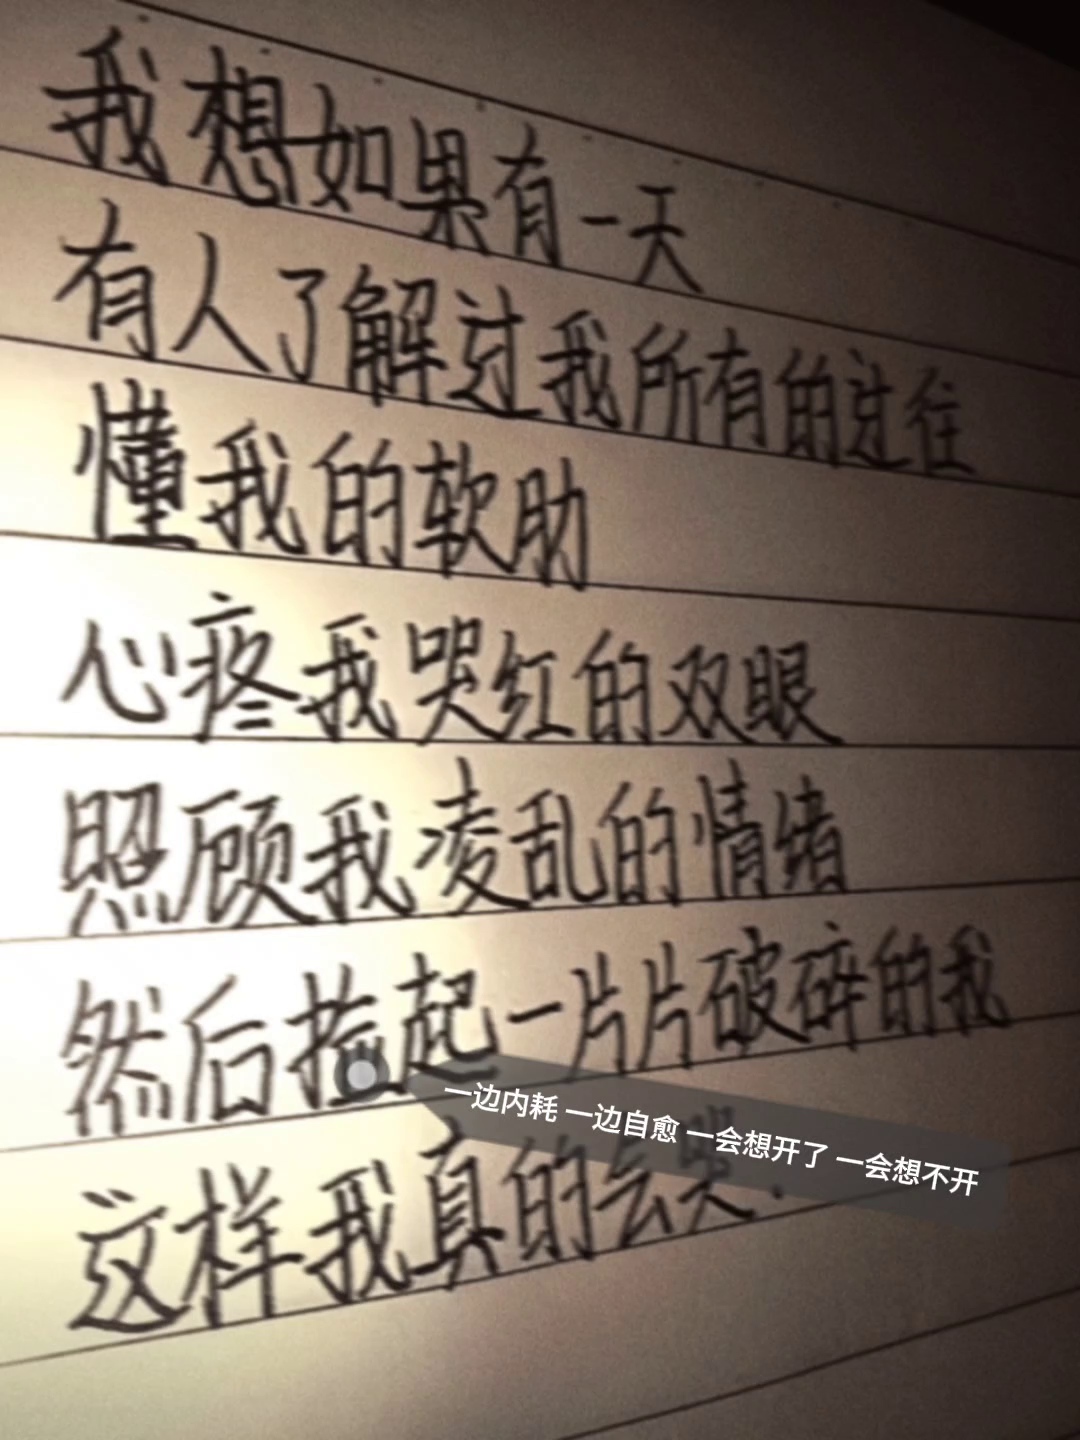 我想如果有一天
有人了解过我所有的过往
懂我的软肋
心疼我哭红的双眼
照顾我凌乱的情绪
然后捡起一片片破碎的我
一边内耗 一边自愈 一会想开了 一会想不开
这样我真的会哭.